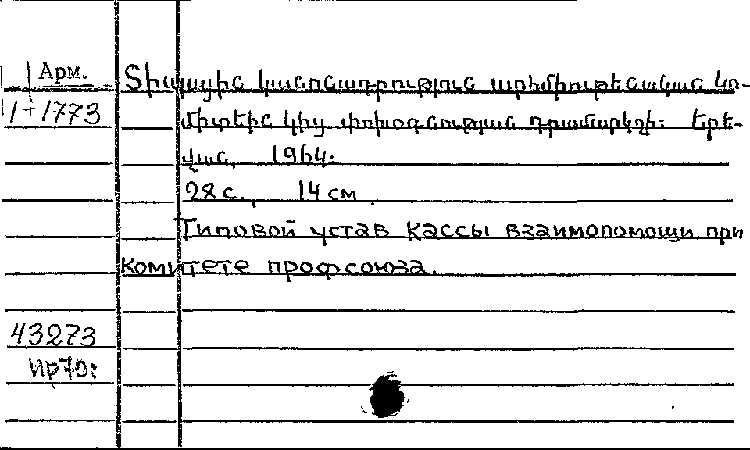 Арм.
1+1773
Տիպային կանոնադրություն արհմիութենական կո-
միտեին կից փոխօգնության դրամարկղի: Երե-
վան, 1964:
28 с., 14 см.
Типовой устав кассы взаимопомощи при
комитете профсоюза.
43273